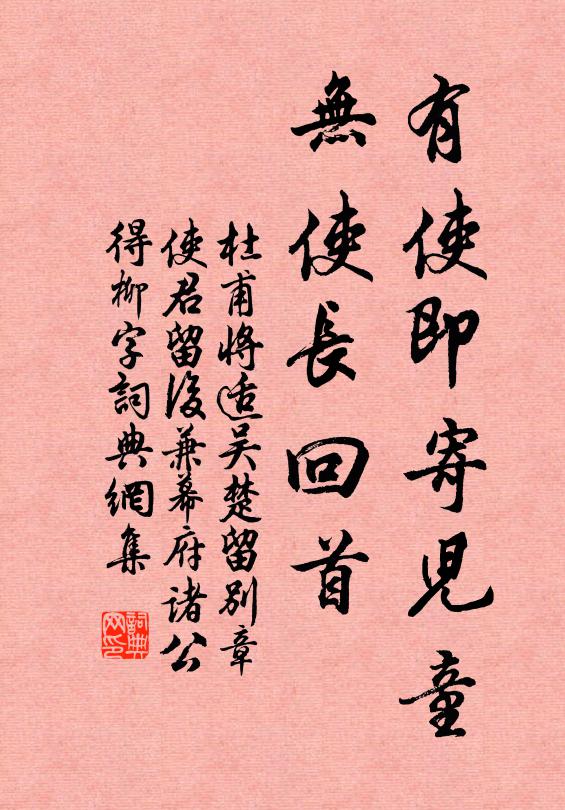 有使即寄兒童
無使長回首
杜甫將适吴楚留別章
使君留後兼幕府諸公
得柳字詞典網集
詞典网印